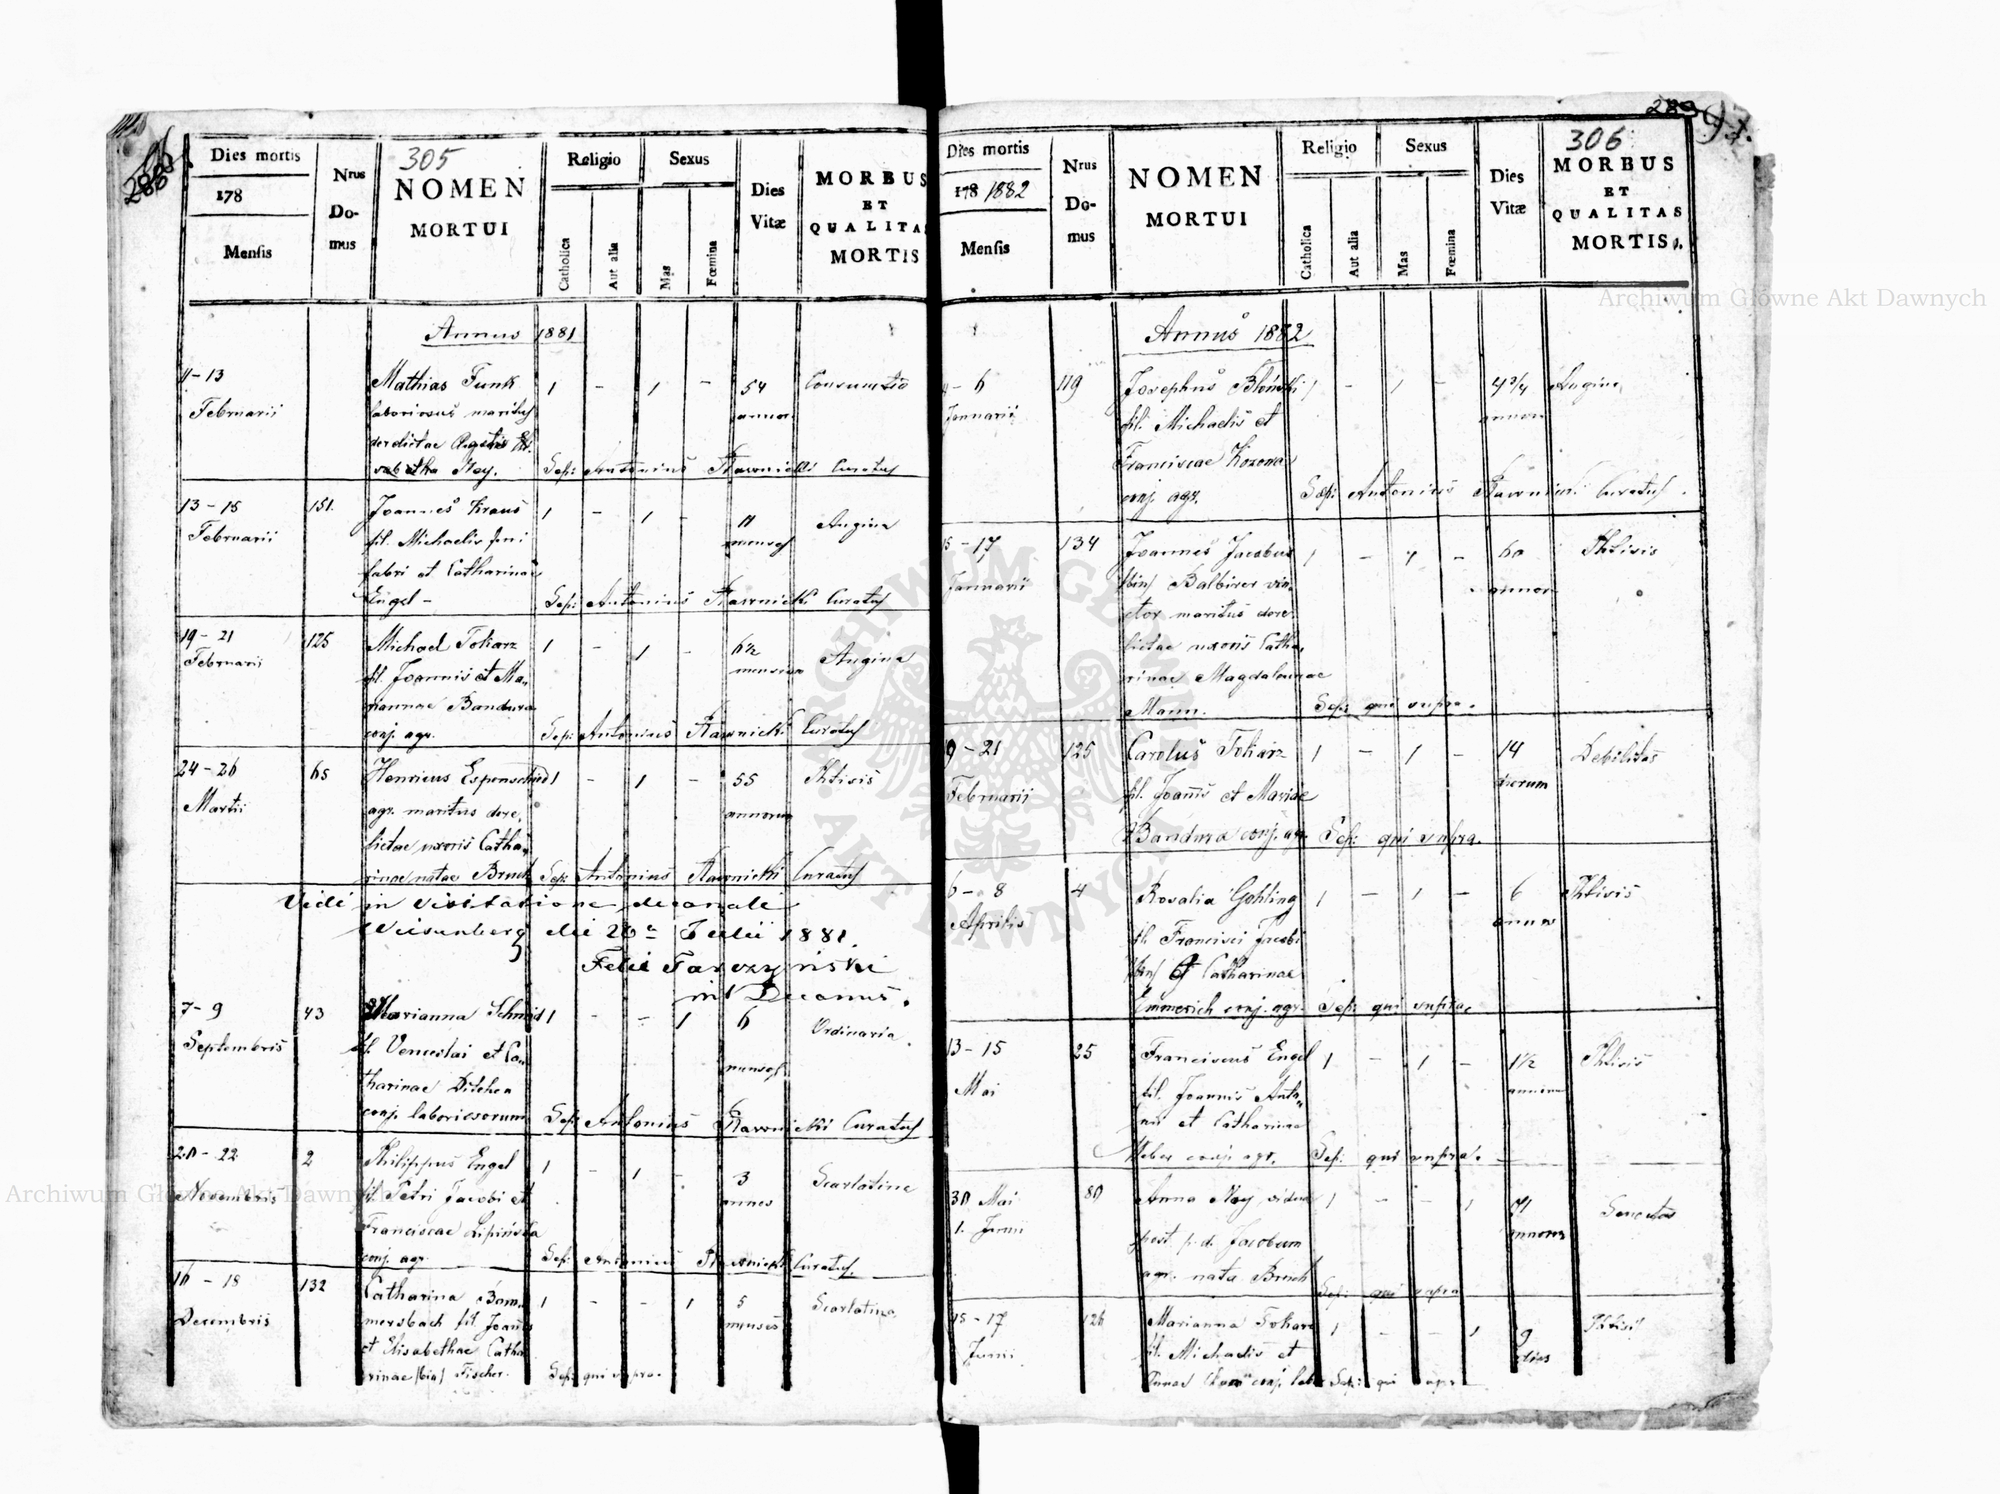 288
305
Dies mortis
178
Mensis
Nrus
Do-
mus
NOMEN
MORTUI
Religio
Catholica
Aut alia
Sexus
Mas
Fœmina
Dies
Vitæ
MORBUS
ET
QUALITAS
MORTIS
Annus 1881
11-13
Februarii
Mathias Funk
laboriosus maritus
derelictae
1 - 1 -
54
annor
Consumtio
Sep: Antonius Rawnicki Curatus
13-15
Februarii
151.
Joannes Kraus
fil. Michaelis
fabri et Catharinae
Engel -
1 - 1 -
11
menses
Angina
Sep: Antonius Rawnicki Curatus
19-21
Februarii
125
Michael Tokarz
fil. Joannis et Ma-
riannae Bandura
conj. agr.
1 - 1 -
6½
mensium
Angina
Sep: Antonius Rawnicki Curatus
24-26
Martii
65
Henricus Espenschied
agr. maritus dere,
lictae uxoris Catha,
rinae natae Bruch
1 - 1 -
55
annorum
Phtisis
Sep: Antonius Rawnicki Curatus
Vidi in visitatione decanali
Weisenberg die 26a Julii 1881.
Decanus.
7-9
Septembris
43
Marianna Schmid
fil. Venceslai et Ca-
tharinae
conj. laboriosorum
1 - - 1
6
menses
Ordinaria.
Sep: Antonius Rawnicki Curatus
20-22
Novembris
2
Philippus Engel
fil. Petri Jacobi et
Franciscae Lipińska
conj. agr.
1 - 1 -
3
annos
Scarlatina
Sep: Antonius Rawnicki Curatus.
16-18
Decembris
132
Catharina Bom,
mersbach fil. Joannis
et Elisabethae Catha
rinae /bin/ Fischer.
1 - - 1
5
menses
Scarlatina
Sep: qui supra.
289
306
Dies mortis
178 1882
Mensis
Nrus
Do-
mus
NOMEN
MORTUI
Religio
Catholica
Aut alia
Sexus
Mas
Fœmina
Dies
Vitæ
MORBUS
ET
QUALITAS
MORTIS.
Annus 1882
4-6
Januarii
119
Josephus Błoński
fil. Michaelis et
Franciscae
conj. agr.
1 - 1 -
4¾
annor
Angina
Sep: Antonius Rawnicki Curatus.
15-17
Januarii
134
Joannes Jacobus
/bin/ Balbirer
maritus dere
lictae uxoris Catha,
rinae Magdalenae
Mann.
1 - 1 -
60
annor
Phtisis
Sep: qui supra.
19-21
Februarii
125
Carolus Tokarz
fil. Joannis et Mariae
Bandura conj. agr.
1 - 1 -
14
dierum
Debilitas
Sep: qui supra.
6-8
Aprilis
4
Rosalia Gohling
fil. Francisci Jacobi
/bin/ et Catharinae
Emmerich conj. agr.
1 - 1 -
6
annos
Phtisis
Sep: qui supra.
13-15
Mai
25
Franciscus Engel
fil. Joannis Anto-
nii et Catharinae
Weber conj. agr.
1 - 1 -
1½
Phtisis
Sep: qui supra.
30 Mai
1. Juni
80
Anna Ney vidua
post p. d. Jacobum
agr. nata Bruch
1 - - 1
71
annorum
Senectus
Sep: qui supra
15-17
Juni
126
Marianna Tokarz
fil. Michaelis et
Annae
1 - - 1
9
dies
Phtisis
Sep: qui supra
Archiwum Główne Akt Dawnych
Archiwum Główne Akt Dawnych
ARCHIWUM GŁÓWNE
AKT DAWNYCH